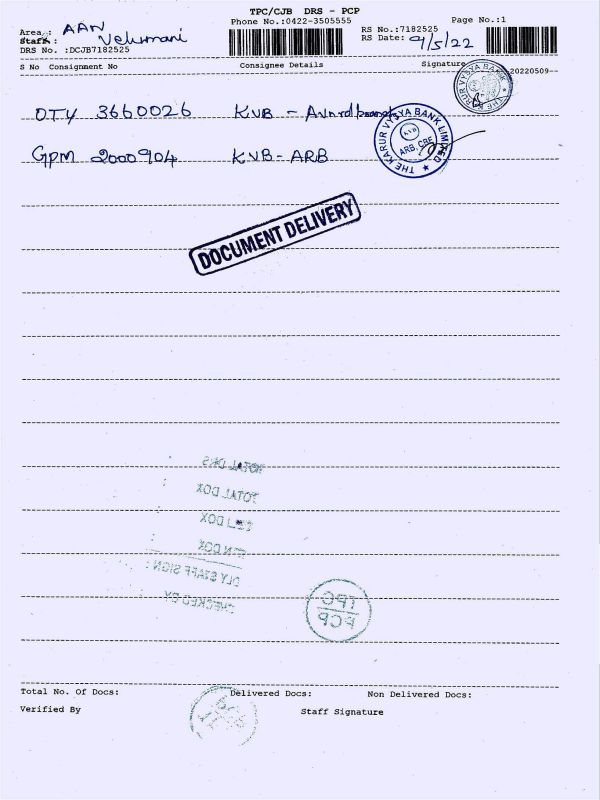 TPC/CJB DRS - PCP
Phone No.:0422-3505555
Page No.:1
Area : AAN
Staff : Velumani
DRS No. :DCJB7182525
RS No.:7182525
RS Date: 9/5/22
S No Consignment No
Consignee Details
Signature
20220509-
THE KARUR VYSYA BANK
OTY 3660026 KVB -
THE KARUR VYSYA BANK LIMITED
KVB
ARB, CBE
GPM 2000904 KVB-ARB
DOCUMENT DELIVERY
TOTAL DRS
TOTAL DOX
DOX
DOX
DLY STAFF SIGN :
CHECKED BY
TPC
PCP
Total No. Of Docs:
Delivered Docs:
Non Delivered Docs:
Verified By
Staff Signature